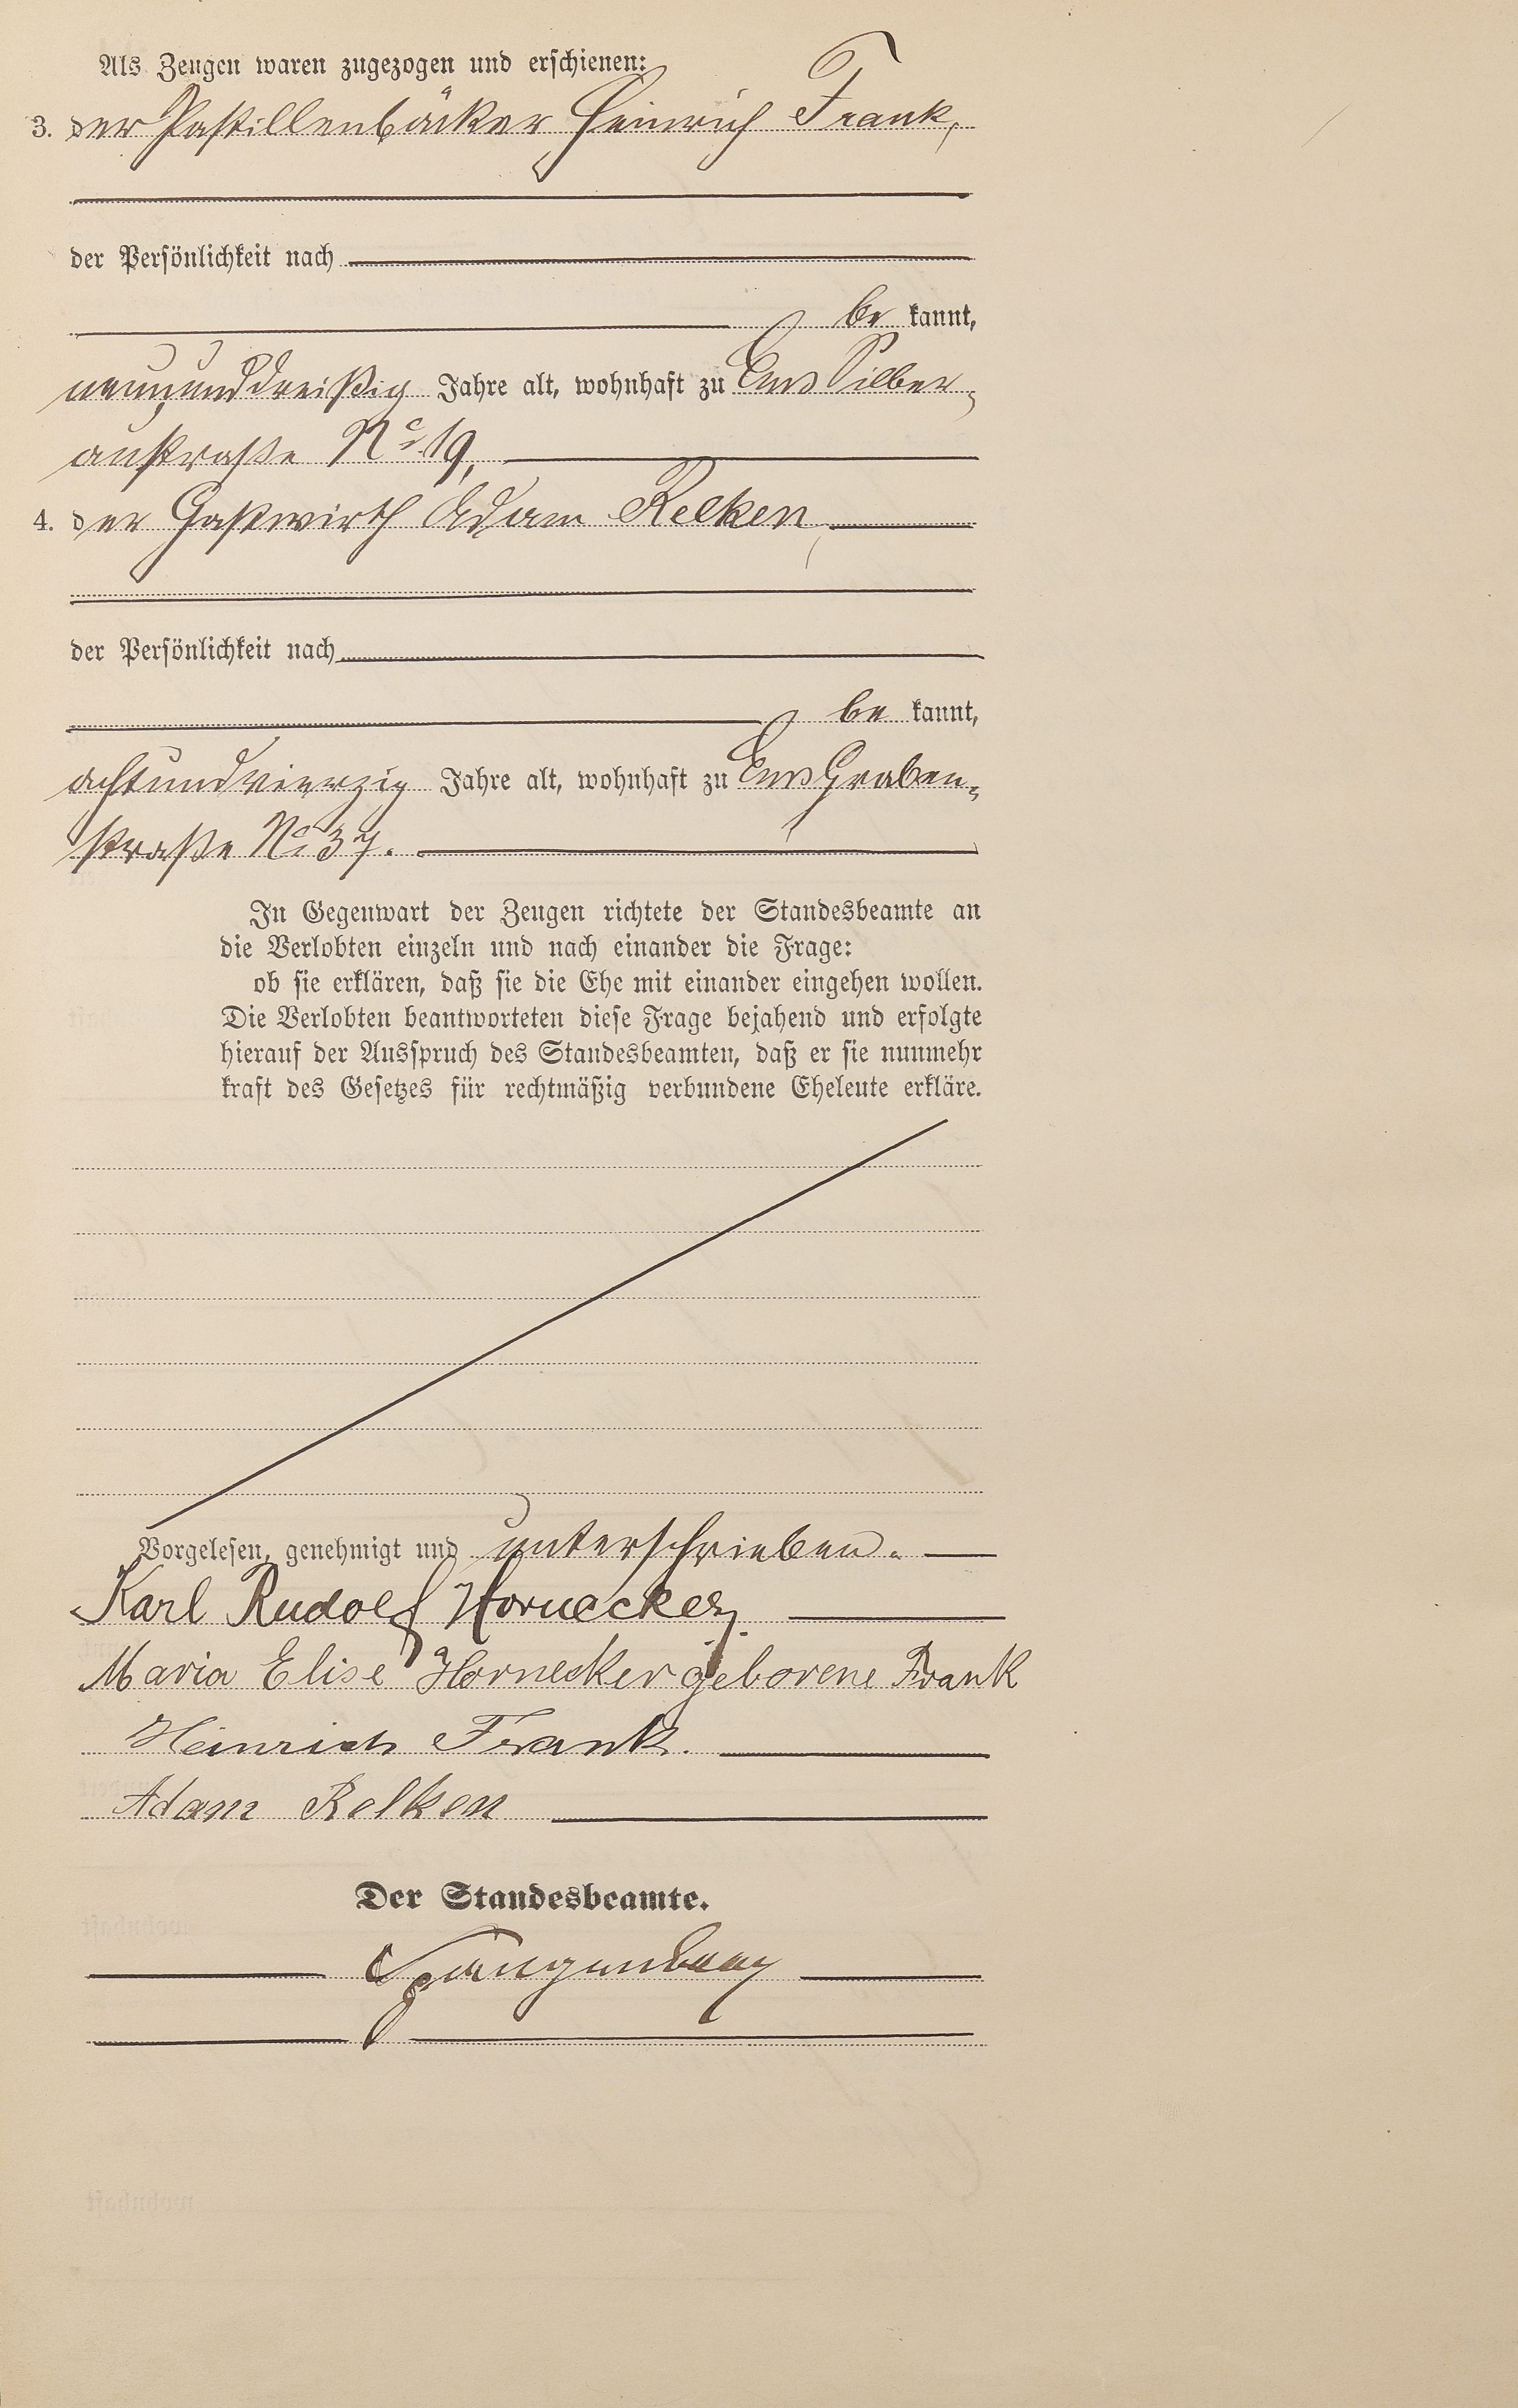 Als Zeugen waren zugezogen und erschienen:
3. der Pastillenbäcker Heinrich Frank,
der Persönlichkeit nach
be kannt,
neununddreißig Jahre alt, wohnhaft zu Ems Silber-
austraße No 19,
4. der Gastwirth Adam Relken,
der Persönlichkeit nach
be kannt,
achtundvierzig Jahre alt, wohnhaft zu Ems Graben-
straße No 37.
In Gegenwart der Zeugen richtete der Standesbeamte an
die Verlobten einzeln und nach einander die Frage:
ob sie erklären, daß sie die Ehe mit einander eingehen wollen.
Die Verlobten beantworteten diese Frage bejahend und erfolgte
hierauf der Ausspruch des Standesbeamten, daß er sie nunmehr
kraft des Gesetzes für rechtmäßig verbundene Eheleute erkläre.
Vorgelesen, genehmigt und unterschrieben.
Karl Rudolf Hornecker
Maria Elise Hornecker geborene Frank
Heinrich Frank.
Adam Relken
Der Standesbeamte.
Spangenberg